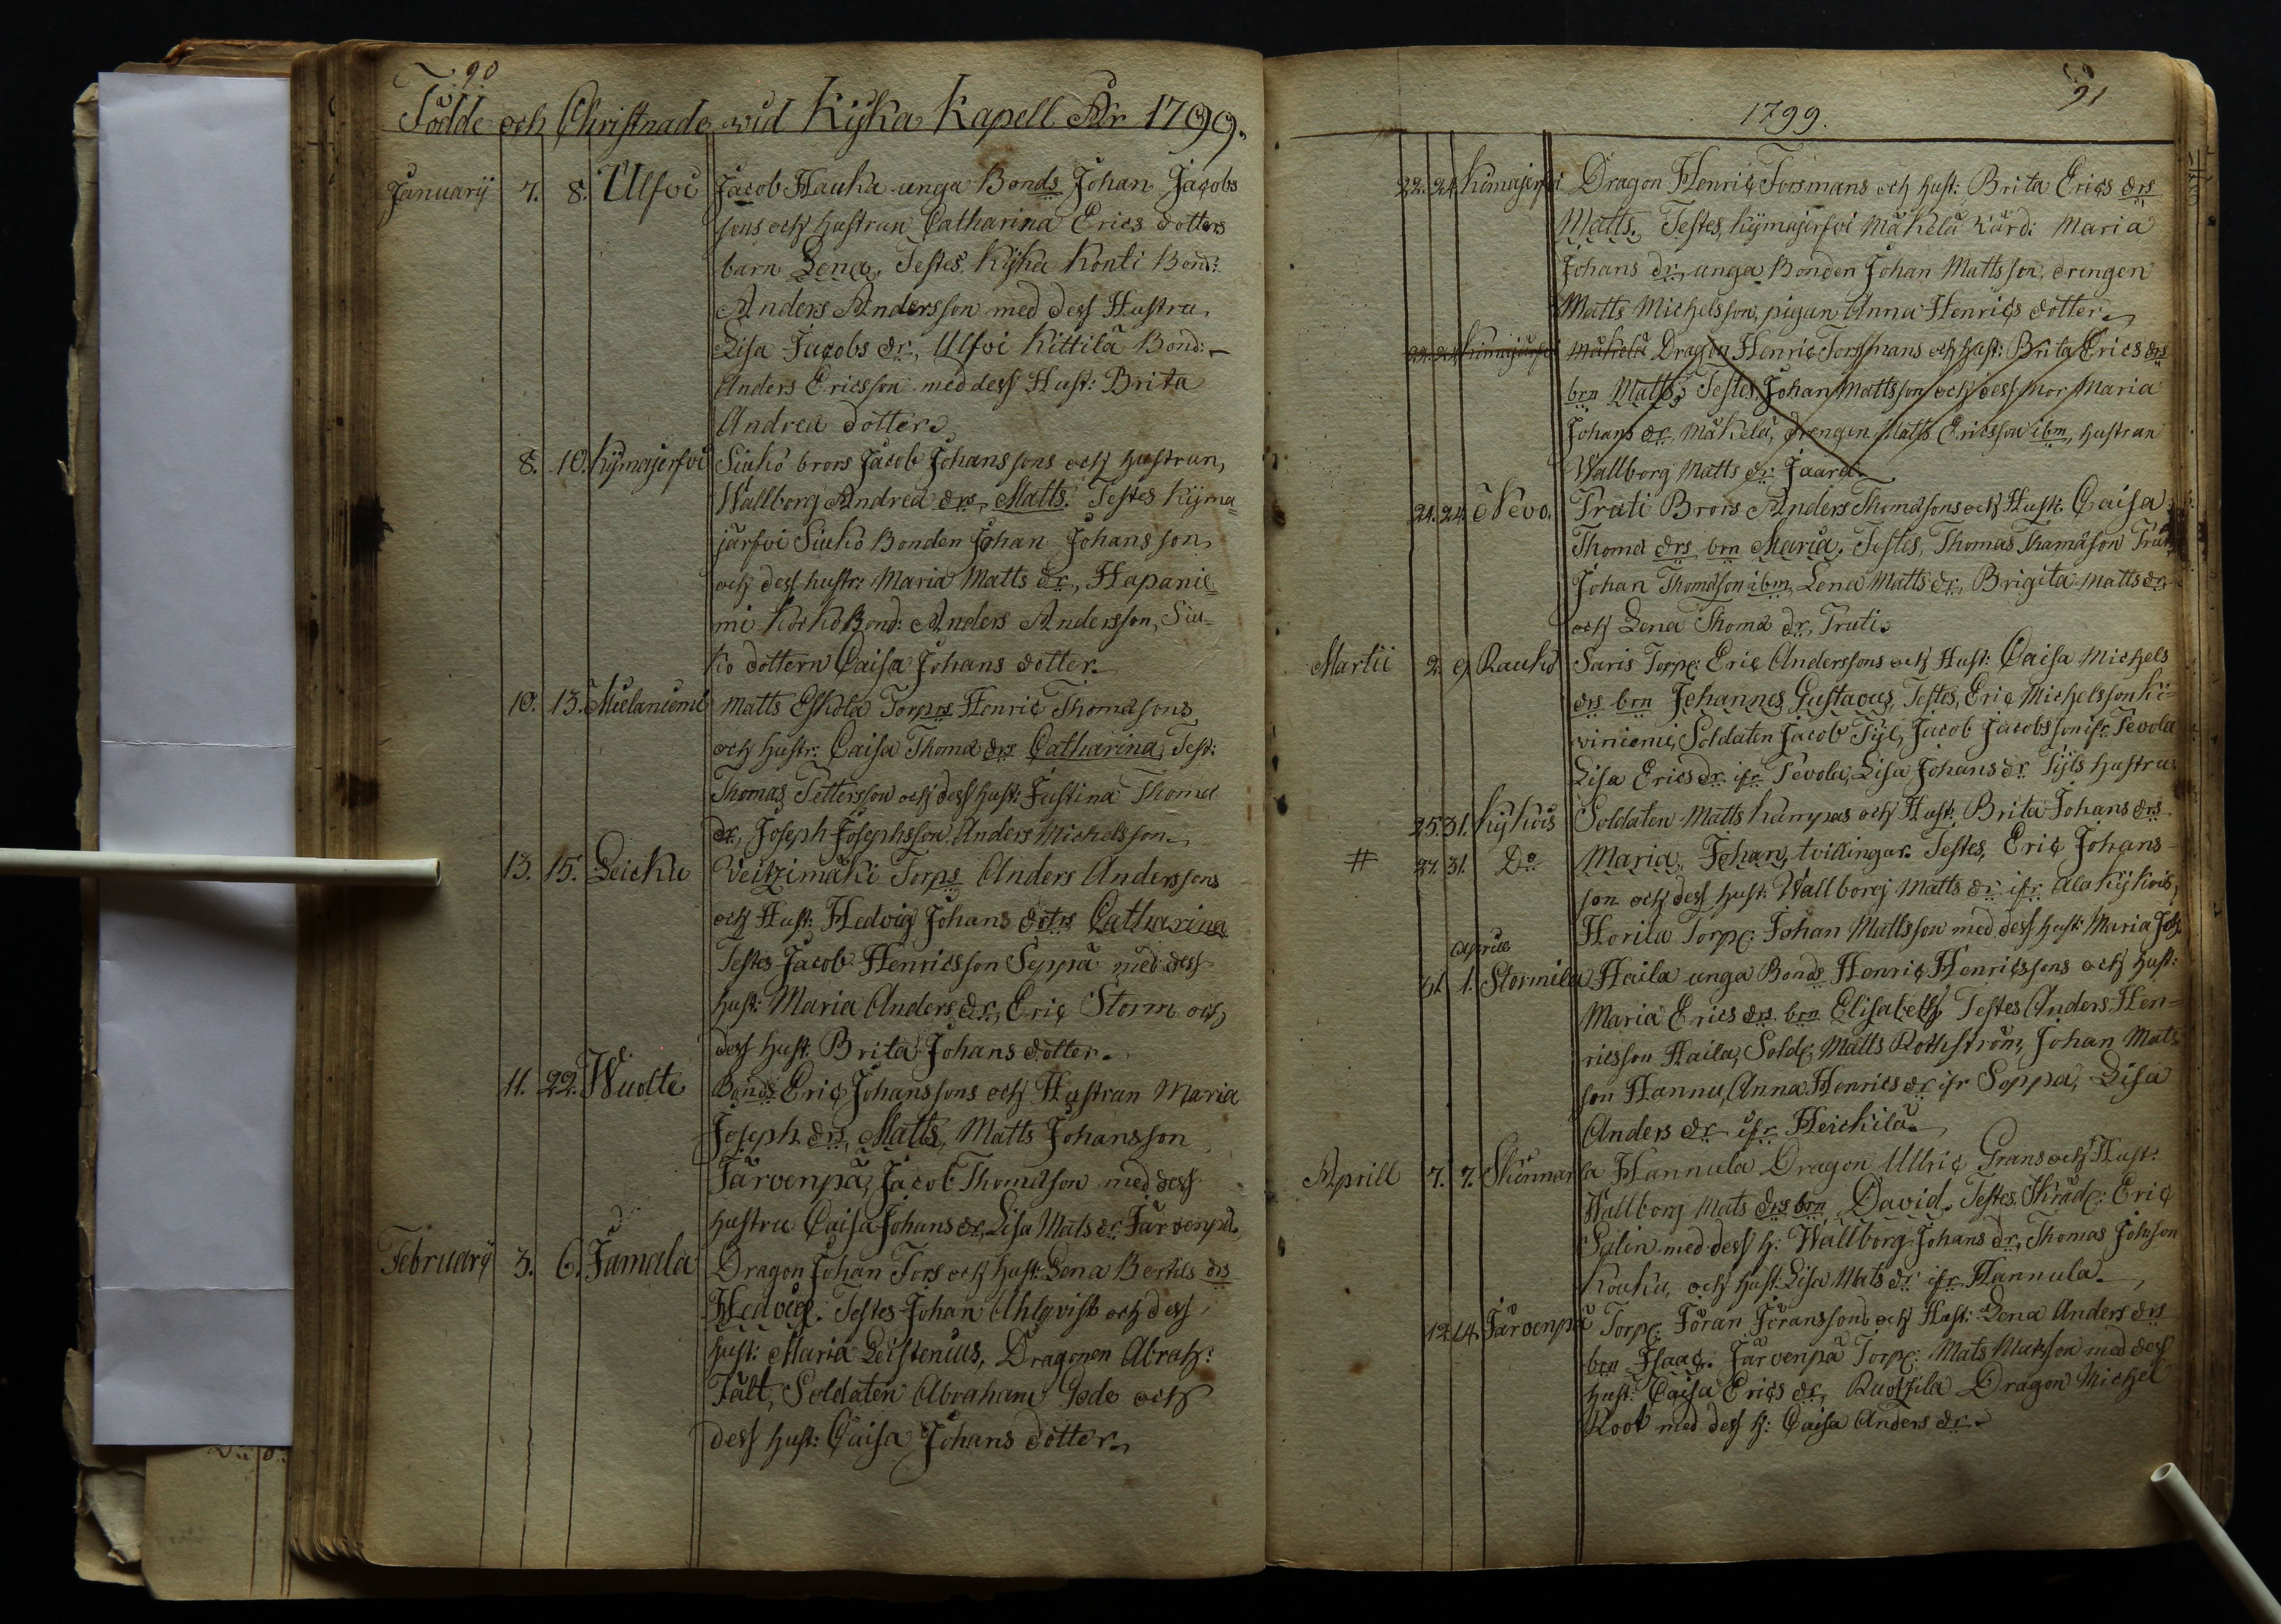 90
Födde och Christnade wid Kyka Kapell År 1799.
Januarij 7. 8. Ulfvi Jacob Hauka unga Bonds Johan Jacobs
sons och hustrun Catharina Erics dotters
barn Lena, Testes Kyka Konti Bond:
Anders Andersson med dess Hustru,
Lisa Jacobs dr, Ulfvi Kittilä Bond:
Anders Ericsson med dess Hust: Brita
Andrea dotter.
8. 10. Kymajerfvi Siukô brors Jacob Johanssons och hustrun,
Wallborg Andrea drs, Matts. Testes Kyma
järfvi Siuko Bonden Johan Johansson,
och dess hustr: Maria Matts dr, Hapanie
mi Bond: Anders Andersson, Siu-
ko dottern Caisa Johans dotter.
10. 13. Mielaniemi Matts Eskola Torprs Henric Thomæsons
och hustr: Caisa Thomæ drs Catharina, Test:
Thomas Pettersson och dess hust: Justina Thomæ
dr, Joseph Josephsson, Anders Michelsson.
13. 15. Leicku Veitzimäki Torps Anders Anderssons
och Hust: Hedvig Johans dotrs Catharina
Testes Jacob Henricsson Seppä med dess
hust: Maria Anders dr, Eric Storm och
dess hust. Brita Johans dotter.
11. 22. Wuolte Bonds Eric Johanssons och Hustrun Maria
Joseph drs, Matts, Matts Johansson
Järvenpä, Jacob Thomæson med dess
hustru Caisa Johans dr, Lisa Mats dr Järvenpä.
Februarij 3. 6. Jamala Dragon Johan Fors och hust: Lena Bertils drs
Hedvig. Testes Johan Ahlqvist och dess
hust: Maria Leistenius, Dragonen Abrah:
Tält, Soldaten Abraham Gode och
dess hust: Caisa Johans dotter.
91
1799.
22. 24. Kimajerfvi Dragon Henric Forsmans och hust: Brita Erics drs
Matts. Testes, Kymajerfvi Mäkelä Maria
Johans dr, unga Bonden Johan Mattsson, drengen
Matts Michelsson, pigan Anna Henrics dotter.
22. 24. Kimajärfvi Mäkelä Dragon Henric Forsmans och hust: Brita Erics drs
brn Matts, Testes, Johan Mattsson och dess mor Maria
Johans dr Mäkelä, drengen Matts Ericsson ibm, hustrun
Wallborg Matts dr Jaara.
21. 24. Nevo. Truti Brors Anders Thomæsons och Hust: Caisa
Thomæ drs brn Maria. Testes, Thomas Thomæson
Johan Thomæson ibm, Lena Matts dr, Brigita Matts dr
och Lena Thomæ dr, Truti.
Martii 2. 9. Rauko Saris Torpr: Eric Anderssons och Hust: Caisa Michels
drs brn Johannes Gustavus, Testes, Eric Michelsson Ki-
viniemi, Soldaten Jacob Tijl, Jacob Jacobsson ifr. Tevola
Lisa Erics dr ifr Tevola, Lisa Johans dr Tijls hustru
25. 31. Kykois Soldaten Matts Kämpas och Hust: Brita Johans drs
# 27. 31. Do Maria, Johan, tvillingar. Testes, Eric Johans-
son och dess hust: Wallborg Matts dr ifr Ala Kykois,
Horila Torpr: Johan Mattsson med dess hust: Maria Joh.
Aprill
31. 1. Stormila Haila unga Bonds Henric Henricssons och hust:
Maria Erics drs brn Elisabeth, Testes Anders Hen-
ricsson Haila, Sold: Matts Rothström, Johan Mats
son Hannu, Anna Henrics dr ifr Soppa, Lisa
Anders dr ifr Heickilä.
Aprill 7. 7. Skinnarla Hannula Dragon Ullric Grans och Hust:
Wallborg Mats drs brn David. Testes Skräd: Eric
Salin med dess h: Wallborg Johans dr, Thomas Johsson
Kouku, och hust: Lisa Mats dr ifr Hannula.
12. 14. Järvenpä Torpr. Jöran Jöranssons och Hust: Lena Anders drs
brn Isaac. Järvenpä Torpr: Mats Matsson med dess
hust: Caisa Erics dr, Ruohila Dragon Michel
Root med dess h: Caisa Anders dr.